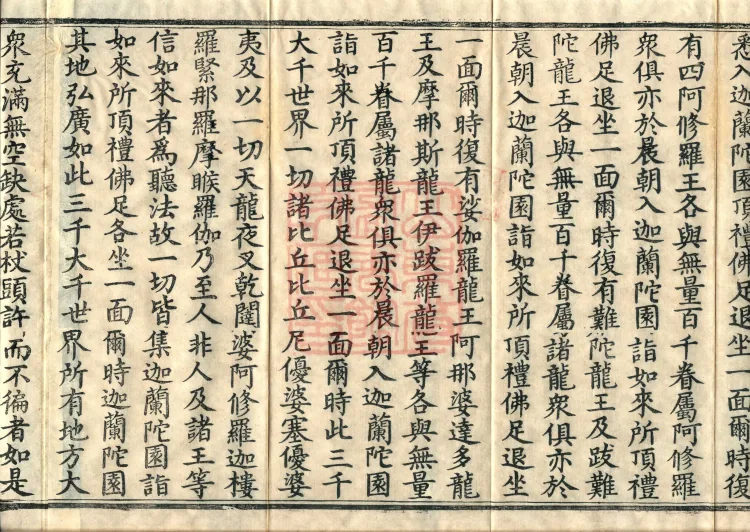 悉入迦蘭陀園頂禮佛足退坐一面爾時復
有四阿修羅王各與無量百千眷屬阿修羅
衆俱亦於晨朝入迦蘭陀園詣如來所頂禮
佛足退坐一面爾時復有難陀龍王及跋難
陀龍王各與無量百千眷屬諸龍衆俱亦於
晨朝入迦蘭陀園詣如來所頂禮佛足退坐
一面爾時復有娑伽羅龍王阿那婆達多龍
王及摩那斯龍王伊跋羅龍王等各與無量
百千眷屬諸龍衆俱亦於晨朝入迦蘭陀園
詣如來所頂禮佛足退坐一面爾時此三千
大千世界一切諸比丘比丘尼優婆塞優婆
夷及以一切天龍夜叉乾闥婆阿修羅迦樓
羅緊那羅摩睺羅伽乃至人非人及諸王等
信如來者爲聽法故一切皆集迦蘭陀園詣
如來所頂禮佛足各坐一面爾時迦蘭陀園
其地弘廣如此三千大千世界所有地方大
衆充滿無空缺處若杖頭許而不徧者如是